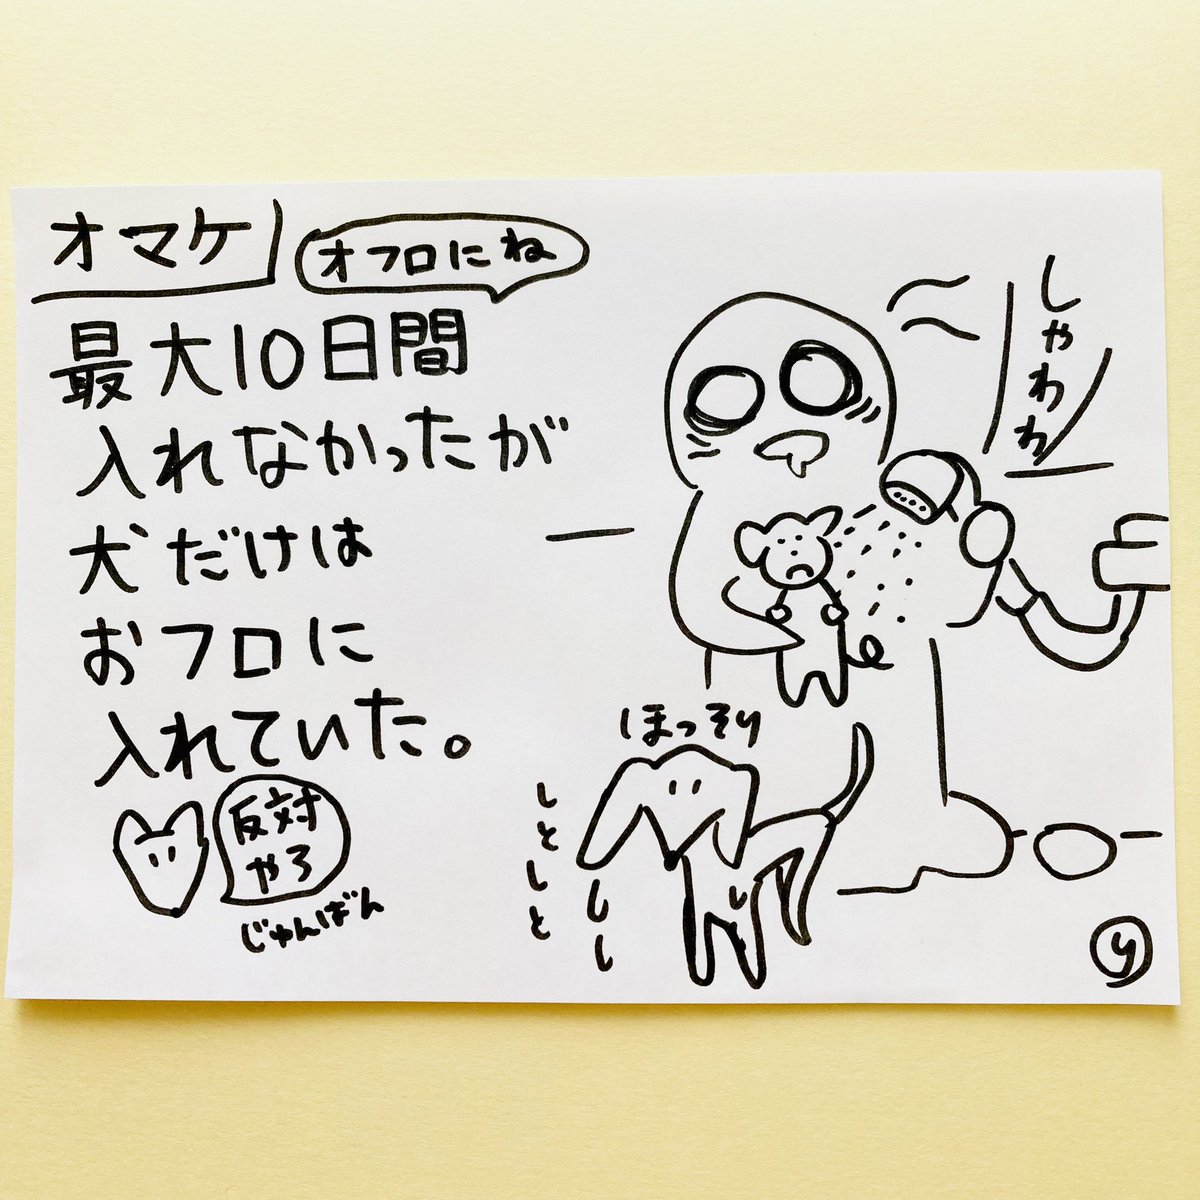 オマケ
オフロにね
最大10日間
入れなかったが
犬だけは
おフロに
入れていた。
反対
やろ
じゅんばん
しゃわわ
ほっそり
しとしと
り